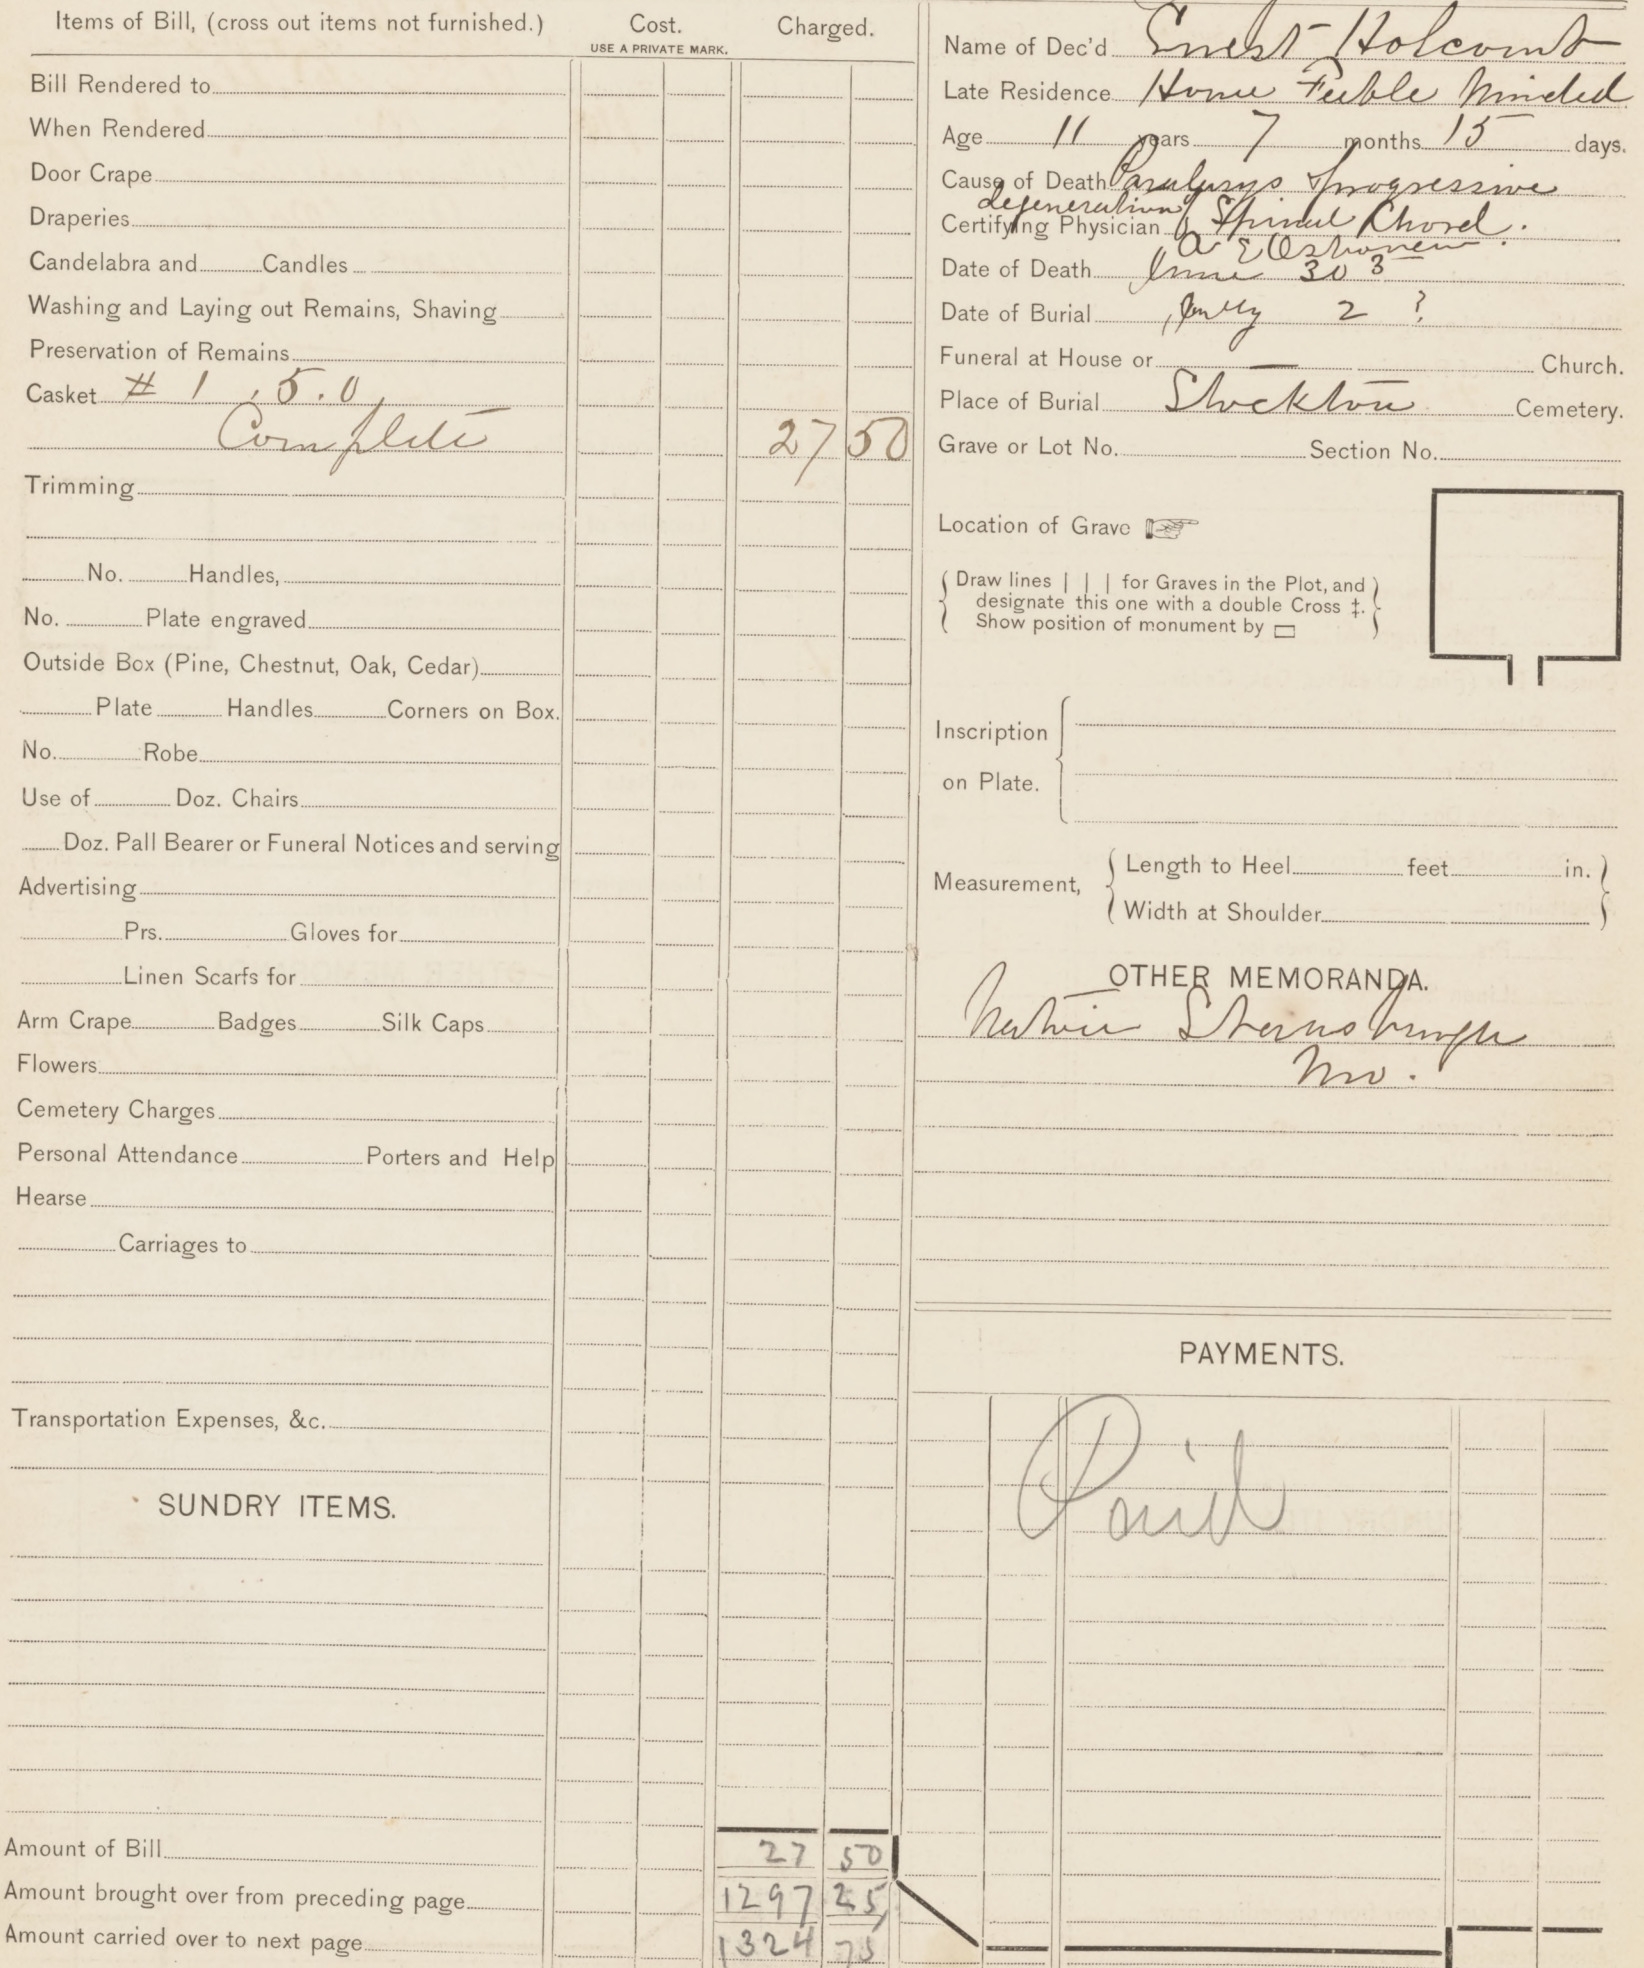 Items of Bill, (cross out items not furnished.) Cost. Charged.
USE A PRIVATE MARK.
Bill Rendered to
When Rendered
Door Crape
Draperies
Candelabra and Candles
Washing and Laying out Remains, Shaving
Preservation of Remains
Casket # 1 , 5.0
Complete 27 50
Trimming
No. Handles,
No. Plate engraved
Outside Box (Pine, Chestnut, Oak, Cedar)
Plate Handles Corners on Box.
No. Robe
Use of Doz. Chairs
Doz. Pall Bearer or Funeral Notices and serving
Advertising
Prs. Gloves for
Linen Scarfs for
Arm Crape Badges Silk Caps
Flowers
Cemetery Charges
Personal Attendance Porters and Help
Hearse
Carriages to
Transportation Expenses, &c.
SUNDRY ITEMS.
Amount of Bill 27 50
Amount brought over from preceding page 1297 25
Amount carried over to next page 1324 75
Name of Dec'd Ernest Holcomb
Late Residence Home Feeble Minded
Age 11 years 7 months 15 days.
Cause of Death Paralysys progressive
degeneration Spinal Chord.
Certifying Physician A E Osborne
Date of Death June 30 3
Date of Burial July 2 ?
Funeral at House or Church.
Place of Burial Stockton Cemetery.
Grave or Lot No. Section No.
Location of Grave
Draw lines | | | for Graves in the Plot, and
designate this one with a double Cross ‡.
Show position of monument by
Inscription
on Plate.
Measurement,
Length to Heel feet in.
Width at Shoulder
OTHER MEMORANDA.
Native
Mo.
PAYMENTS.
Paid